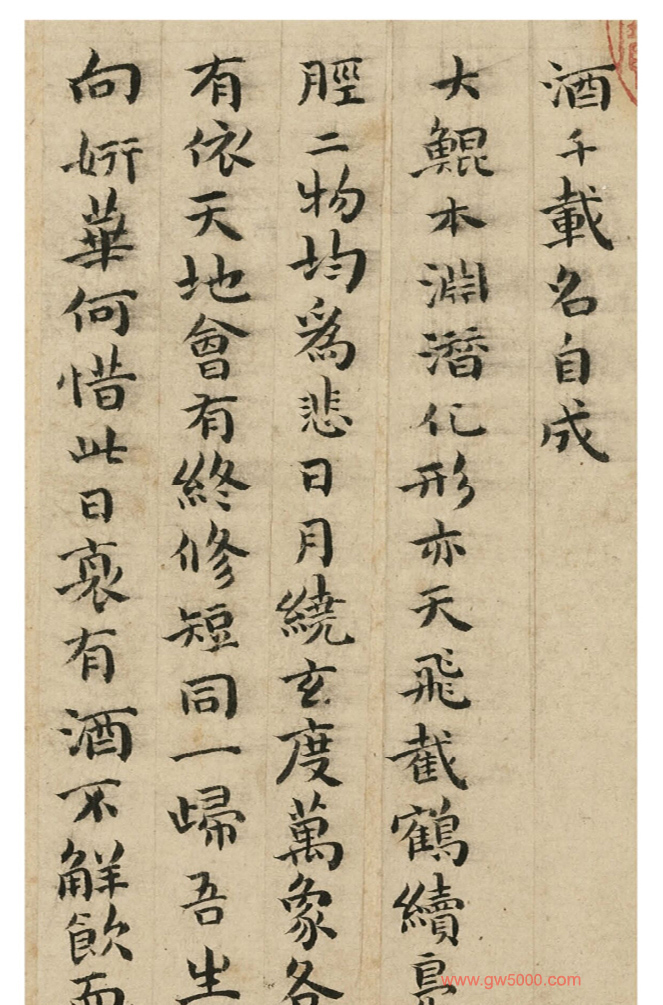 酒千載名自成
大鯤本淵潛化形亦天飛截鶴續
脛二物均為悲日月繞玄度萬象各
有依天地會有終修短同一歸吾生
向妍華何惜此日裒有酒不觧飲而
www.gw5000.com